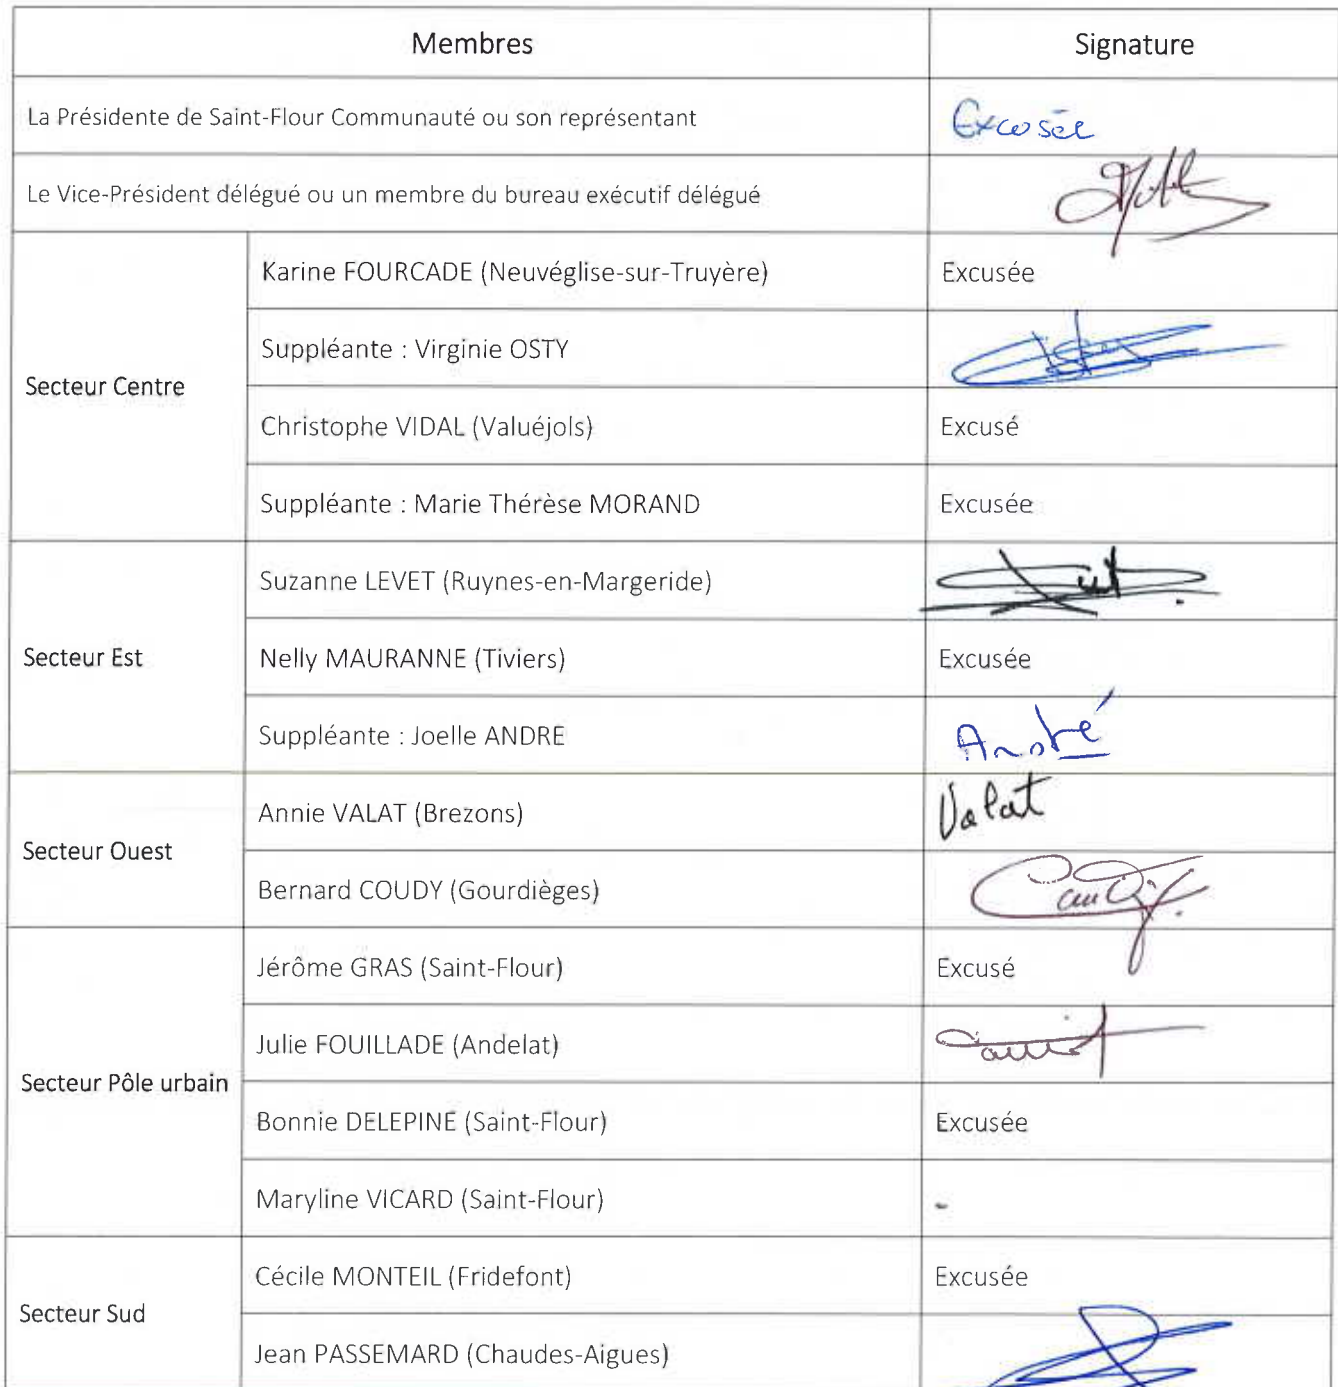 Membres Signature
La Présidente de Saint-Flour Communauté ou son représentant Excusée
Le Vice-Président délégué ou un membre du bureau exécutif délégué
Secteur Centre
Karine FOURCADE (Neuvéglise-sur-Truyère) Excusée
Suppléante : Virginie OSTY
Christophe VIDAL (Valuéjols) Excusé
Suppléante : Marie Thérèse MORAND Excusée
Secteur Est
Suzanne LEVET (Ruynes-en-Margeride)
Nelly MAURANNE (Tiviers) Excusée
Suppléante : Joelle ANDRE André
Secteur Ouest
Annie VALAT (Brezons) Valat
Bernard COUDY (Gourdièges) Coudy
Secteur Pôle urbain
Jérôme GRAS (Saint-Flour) Excusé
Julie FOUILLADE (Andelat)
Bonnie DELEPINE (Saint-Flour) Excusée
Maryline VICARD (Saint-Flour) -
Secteur Sud
Cécile MONTEIL (Fridefont) Excusée
Jean PASSEMARD (Chaudes-Aigues)